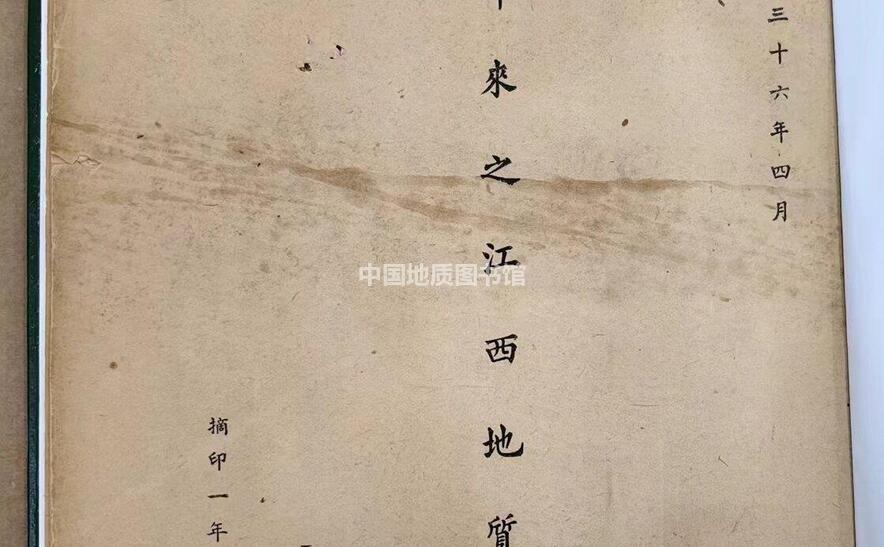 三十六年四月
來之江西地質
摘印一年
中国地质图书馆